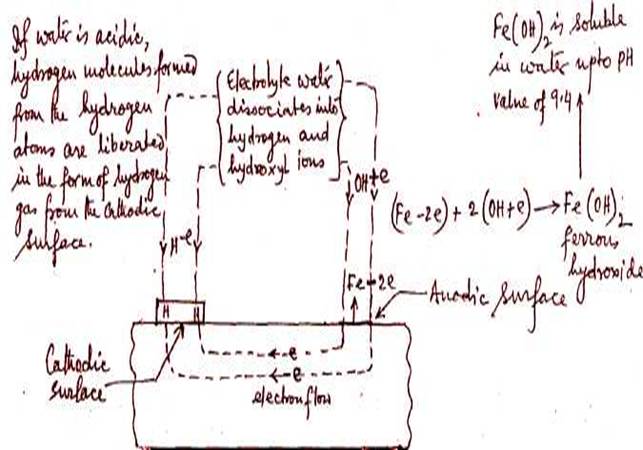 If water is acidic,
hydrogen molecules formed
from the hydrogen
atoms are liberated
in the form of hydrogen
gas from the cathodic
surface.
Electrolyte water
dissociates into
hydrogen and
hydroxyl ions
Fe(OH)2 is soluble
in water upto pH
value of 9.4
OH+e
H-e
(Fe-2e) + 2(OH+e) → Fe(OH)2
ferrous
hydroxide
Fe-2e
Anodic surface
H H
Cathodic
surface
e
e
electron flow